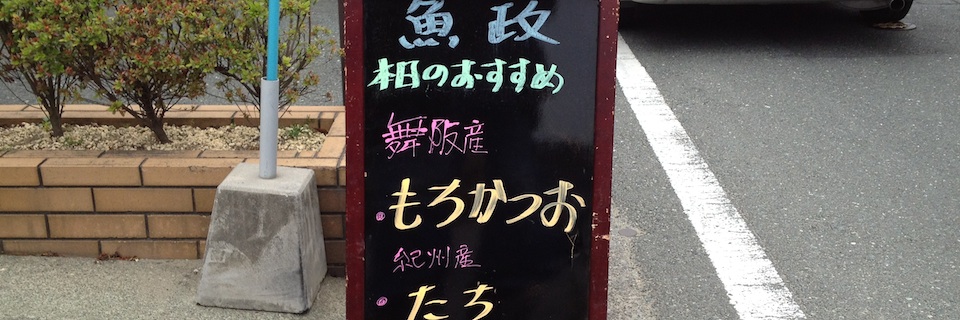 魚政
本日のおすすめ
舞阪産
もちかつお
紀州産
たち